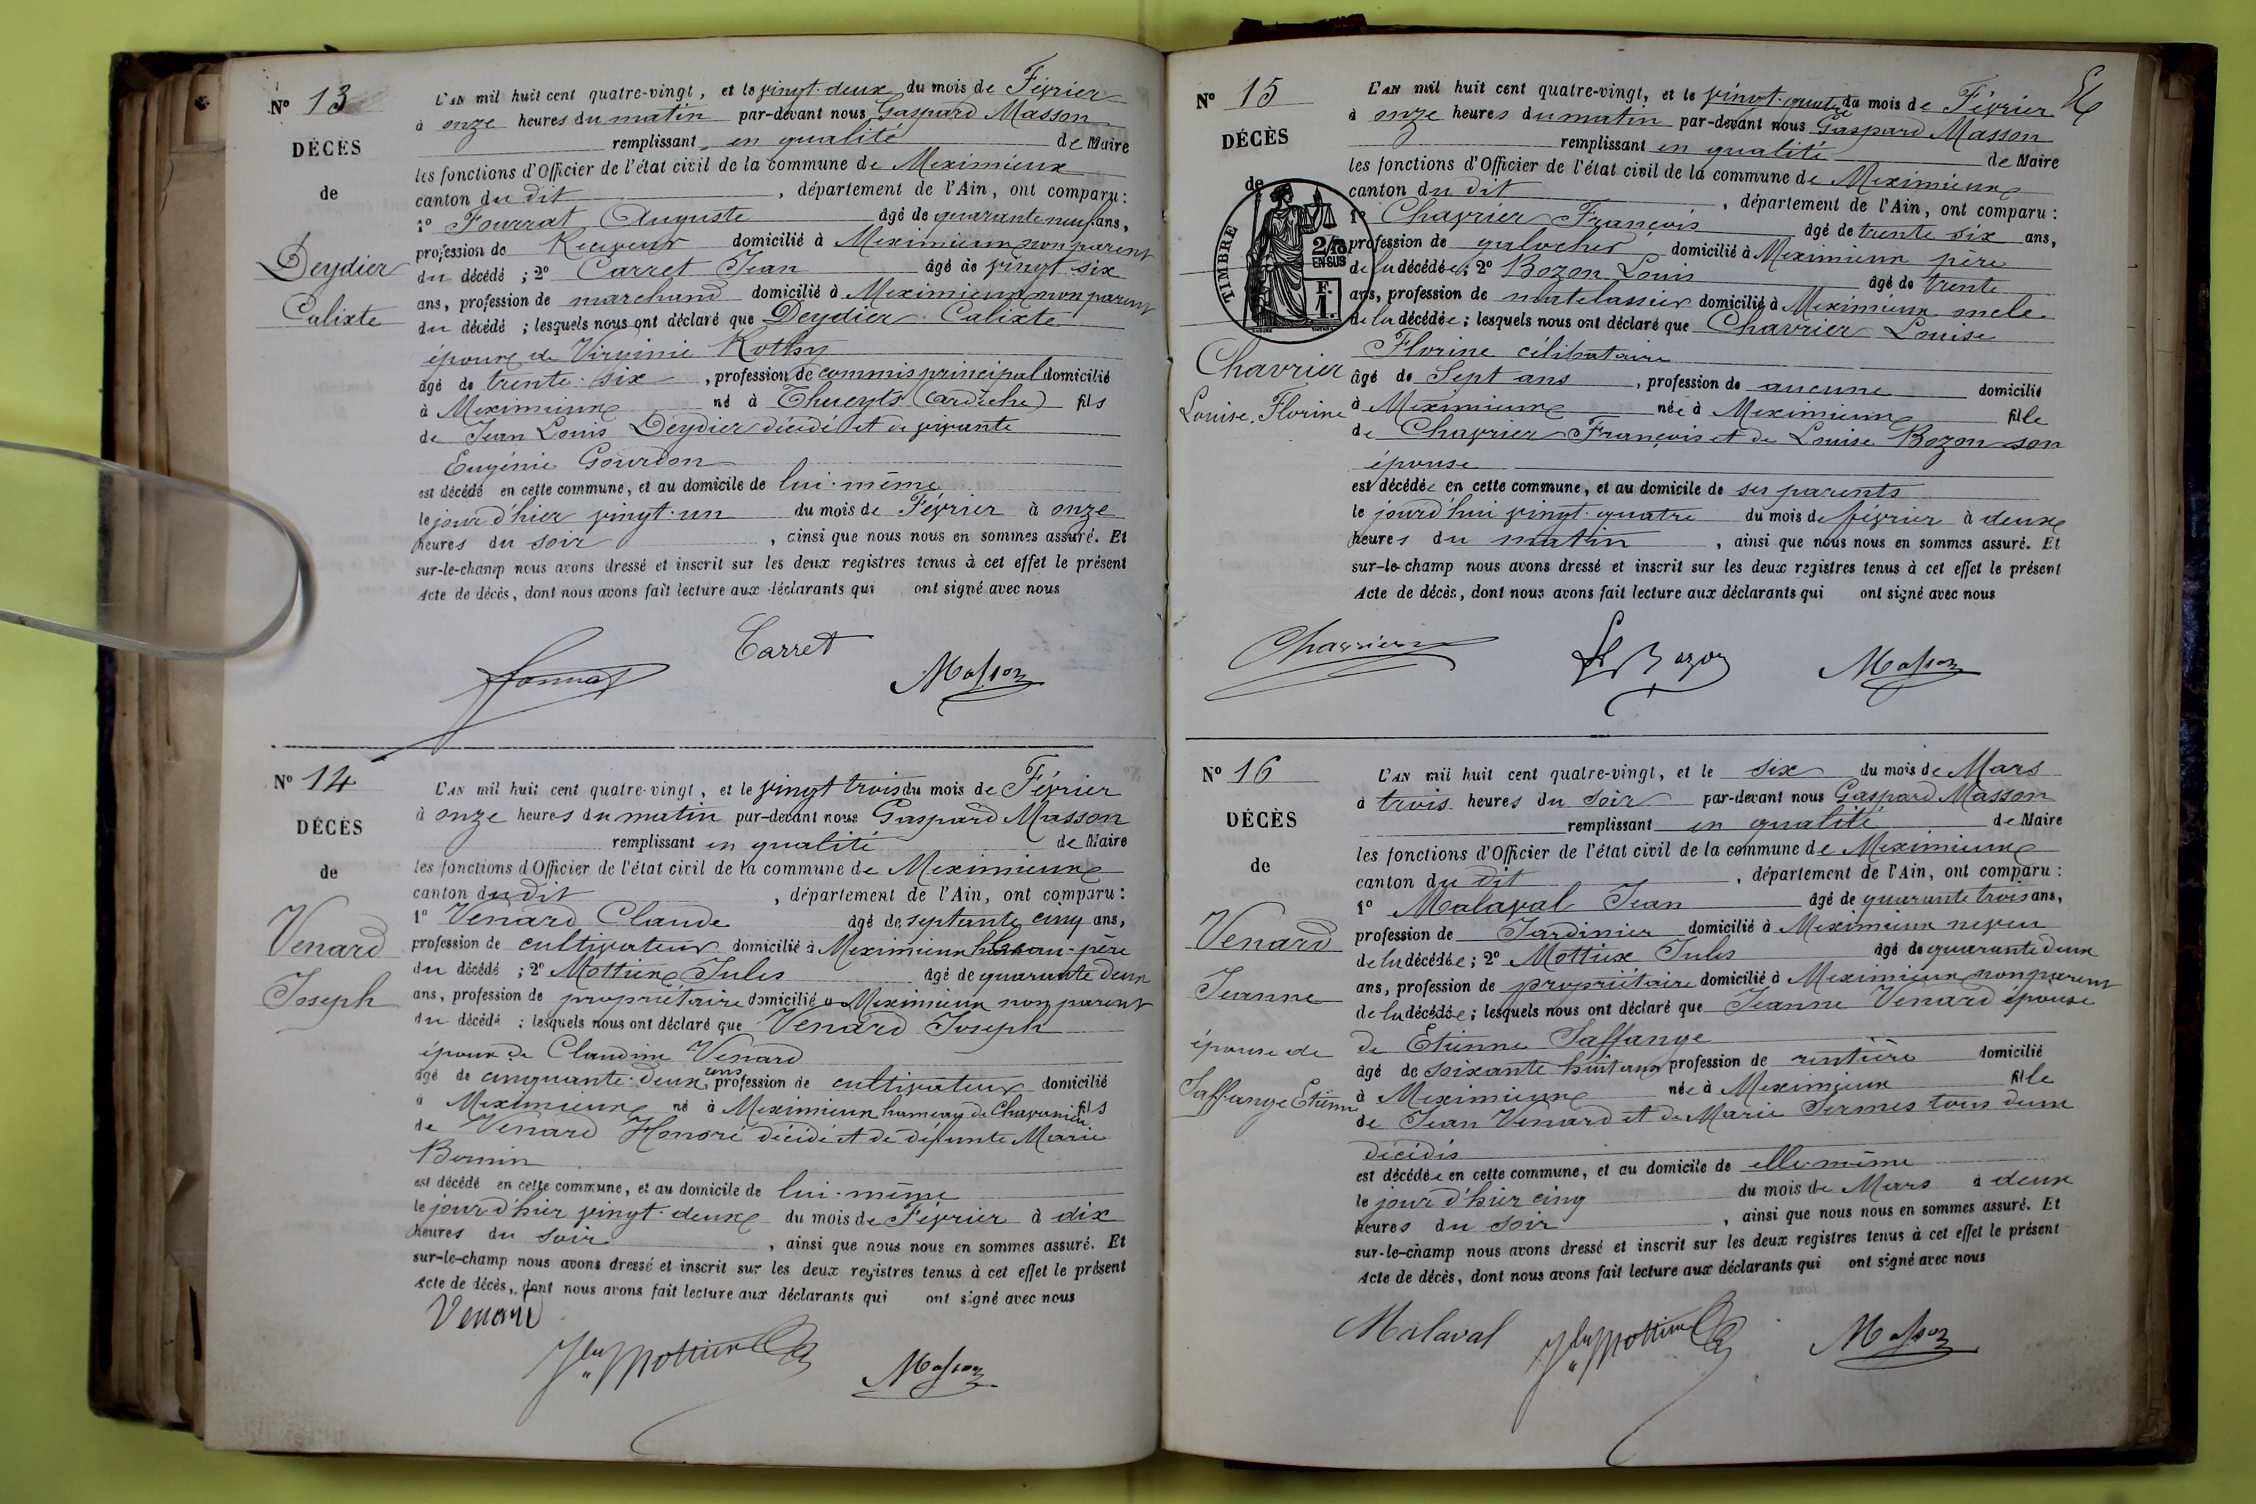 N° 13
DÉCÈS
de
Deydier
Calixte
L'AN mil huit cent quatre-vingt, et le vingt-deux du mois de Février
à onze heures du matin par-devant nous Gaspard Masson
remplissant en qualité de Maire
les fonctions d'Officier de l'état civil de la commune de Meximieux
canton du dit, département de l'Ain, ont comparu:
1° Fourrat Auguste âgé de quarante neuf ans,
profession de Receveur domicilié à Meximieux non parent
du décédé; 2° Carret Jean âgé de vingt six
ans, profession de marchand domicilié à Meximieux non parent
du décédé; lesquels nous ont déclaré que Deydier Calixte
époux de Virginie Rothy
âgé de trente-six, profession de commis principal domicilié
à Meximieux né à Thueyts (ardèche) fils
de Jean Louis Deydier décédé et de vivante
Eugénie Gourdon
est décédé en cette commune, et au domicile de lui-même
le jour d'hier vingt-un du mois de Février à onze
heures du soir, ainsi que nous nous en sommes assuré. Et
sur-le-champ nous avons dressé et inscrit sur les deux registres tenus à cet effet le présent
Acte de décès, dont nous avons fait lecture aux déclarants qui ont signé avec nous
Carret
Masson
N° 14
DÉCÈS
de
Venard
Joseph
L'AN mil huit cent quatre-vingt, et le vingt trois du mois de Février
à onze heures du matin par-devant nous Gaspard Masson
remplissant en qualité de Maire
les fonctions d'Officier de l'état civil de la commune de Meximieux
canton du dit, département de l'Ain, ont comparu:
1° Venard Claude âgé de septante cinq ans,
profession de cultivateur domicilié à Meximieux beau-père
du décédé; 2° Mottieux Jules âgé de quarante deux
ans, profession de propriétaire domicilié à Meximieux non parent
du décédé; lesquels nous ont déclaré que Venard Joseph
époux de Claudine Venard
âgé de cinquante-deux ans, profession de cultivateur domicilié
à Meximieux né à Meximieux hameau de fils
de Venard Honoré décédé et de défunte Marie
est décédé en cette commune, et au domicile de lui-même
le jour d'hier vingt-deux du mois de Février à dix
heures du soir, ainsi que nous nous en sommes assuré. Et
sur-le-champ nous avons dressé et inscrit sur les deux registres tenus à cet effet le présent
Acte de décès, dont nous avons fait lecture aux déclarants qui ont signé avec nous
Venard
Masson
N° 15
DÉCÈS
de
TIMBRE
2/10
EN SUS
F.
1.
Chavrier
Louise. Florine
L'AN mil huit cent quatre-vingt, et le vingt-quatre du mois de Février
à onze heures du matin par-devant nous Gaspard Masson
remplissant en qualité de Maire
les fonctions d'Officier de l'état civil de la commune de Meximieux
canton du dit, département de l'Ain, ont comparu:
1° Chavrier François âgé de trente six ans,
profession de galocher domicilié à Meximieux père
de la décédée; 2° Bozon Louis âgé de trente
ans, profession de matelassier domicilié à Meximieux oncle
de la décédée; lesquels nous ont déclaré que Chavrier Louise
Florine célibataire
âgé de Sept ans, profession de aucune domicilié
à Meximieux née à Meximieux fille
de Chavrier François et de Louise Bozon son
épouse
est décédée en cette commune, et au domicile de ses parents
le jourd'hui vingt-quatre du mois de février à deux
heures du matin, ainsi que nous nous en sommes assuré. Et
sur-le-champ nous avons dressé et inscrit sur les deux registres tenus à cet effet le présent
Acte de décès, dont nous avons fait lecture aux déclarants qui ont signé avec nous
Chavrier
Bozon
Masson
N° 16
DÉCÈS
de
Venard
Jeanne
épouse de
Saffange Etienne
L'AN mil huit cent quatre-vingt, et le six du mois de Mars
à trois heures du soir par-devant nous Gaspard Masson
remplissant en qualité de Maire
les fonctions d'Officier de l'état civil de la commune de Meximieux
canton du dit, département de l'Ain, ont comparu:
1° Malaval Jean âgé de quarante trois ans,
profession de Jardinier domicilié à Meximieux neveu
de la décédée; 2° Mottieux Jules âgé de quarante deux
ans, profession de propriétaire domicilié à Meximieux non parent
de la décédée; lesquels nous ont déclaré que Jeanne Venard épouse
de Etienne Saffange
âgé de soixante huit ans profession de rentière domicilié
à Meximieux née à Meximieux fille
de Jean Venard et de Marie Sermes tous deux
décédés
est décédée en cette commune, et au domicile de elle même
le jour d'hier cinq du mois de Mars à deux
heures du soir, ainsi que nous nous en sommes assuré. Et
sur-le-champ nous avons dressé et inscrit sur les deux registres tenus à cet effet le présent
Acte de décès, dont nous avons fait lecture aux déclarants qui ont signé avec nous
Malaval
Masson